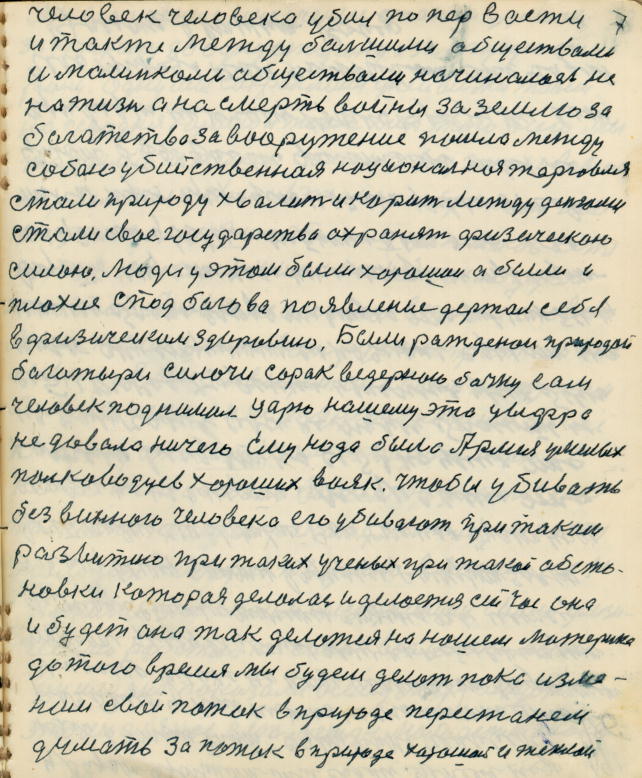 человек человека убил по пер васти 7
и такте между балшими абществами
и малинкоми абществами начиналась не
на жизн а на смерть войны за землю за
богатетво за вооружение пошла между
собаю убийственная национал ная жарговля
стали природу хвалит и карит между детоми
стали свое государства охранят физическою
силою. Люди у этом были хорошаи а были и
плохие с под богова появление держал себя
в физическом здоровию. Были рождёнаи природой
богатыри силачи сорак ведерною бочку сам
человек поднимал царю нашему эта цифра
не довала ничего Ему нада было Армия умелых
полководцев хороших вояк. Чтобы убивать
без винного человека его убивают при таком
развитию при таких ученых при такой абста-
новки которая делолас и делоется сей час она
и будет она так делотся на нашем материке
до того время мы будем делат пока изме-
ним свой поток в природе перестанем
думать за поток в природе хорошой и тёплой